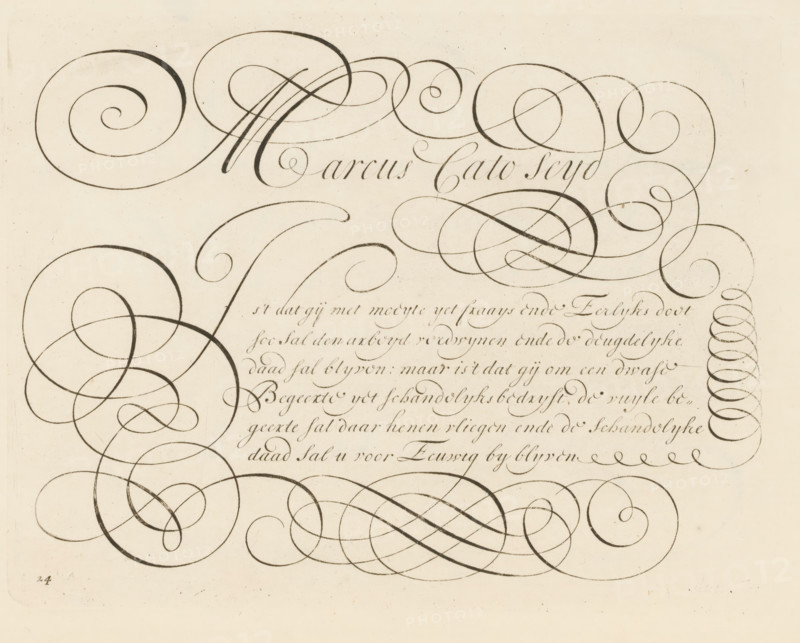 Marcus Cato seyd
Ist dat gij met moeyte yet fraays ende Eerlyks doet
soo sal den arbeyd verdwynen ende de deugdelyke
daad sal blyven: maar ist dat gij om een dwase
Begeerte yet schandelyks bedryft, de vuyle be=
geerte sal daar henen vliegen ende de schandelyke
daad sal u voor Eeuwig by blyven
24